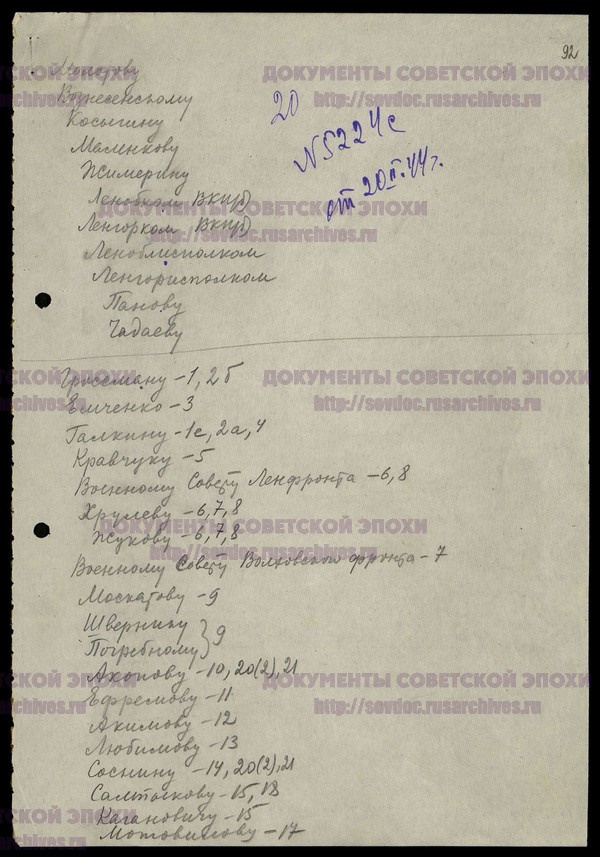 92
Молотову
Вознесенскому
Косыгину
Маленкову
Жимерину
Ленобком ВКП(б)
Ленгорком ВКП(б)
Леноблисполком
Ленгорисполком
Панову
Чадаеву
20
N5224с
от 20/II.44г.
Гроссману – 1, 2б
Емченко – 3
Галкину – 1с, 2а, 4
Кравчуку – 5
Военному Совету Ленфронта – 6, 8
Хрулеву – 6, 7, 8
Жукову – 6, 7, 8
Военному Совету Волховского фронта – 7
Москатову – 9
Швернику
Погребному } 9
Акопову – 10, 20(2), 21
Ефремову – 11
Акимову – 12
Любимову – 13
Соснину – 14, 20(2), 21
Салтыкову – 15, 18
Кагановичу – 15
Мотовилову – 17
ДОКУМЕНТЫ СОВЕТСКОЙ ЭПОХИ
http://sovdoc.rusarchives.ru